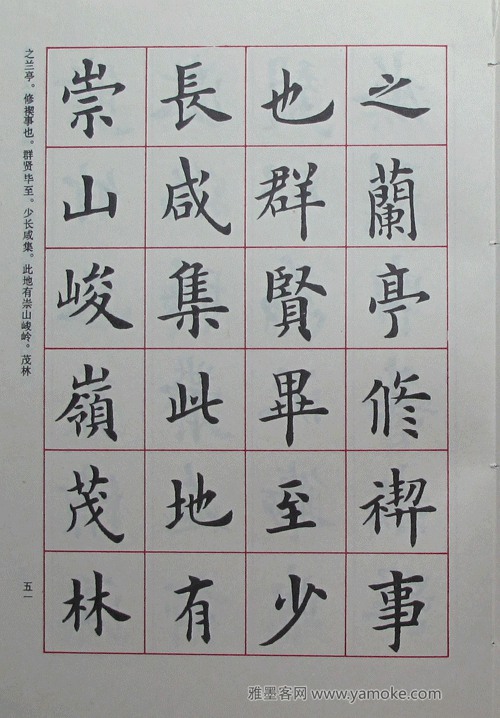 之蘭亭修禊事
也群賢畢至少
長咸集此地有
崇山峻嶺茂林
之兰亭。修禊事也。群贤毕至。少长咸集。此地有崇山峻岭。茂林
五一
雅墨客网 www.yamoke.com